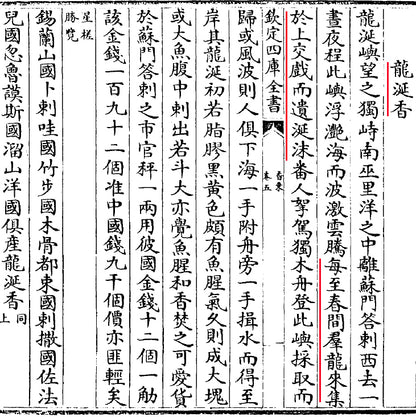 龍涎香
龍涎嶼望之獨峙南巫里洋之中離蘇門答剌西去一
晝夜程此嶼浮灔海而波激雲騰每至春間羣龍來集
於上交戲而遺涎沫番人拏駕獨木舟登此嶼採取而
欽定四庫全書
香乘
卷五
歸或風波則人俱下海一手附舟旁一手揖水而得至
岸其龍涎初若脂膠黑黃色頗有魚腥氣久則成大塊
或大魚腹中剌出若斗大亦覺魚腥和香焚之可愛貨
於蘇門答剌之市官秤一兩用彼國金錢十二個一觔
該金錢一百九十二個准中國錢九千個價亦匪輕矣
星槎
勝覽
錫蘭山國卜剌哇國竹步國木骨都束國剌撒國佐法
兒國忽魯謨斯國溜山洋國俱產龍涎香同
上